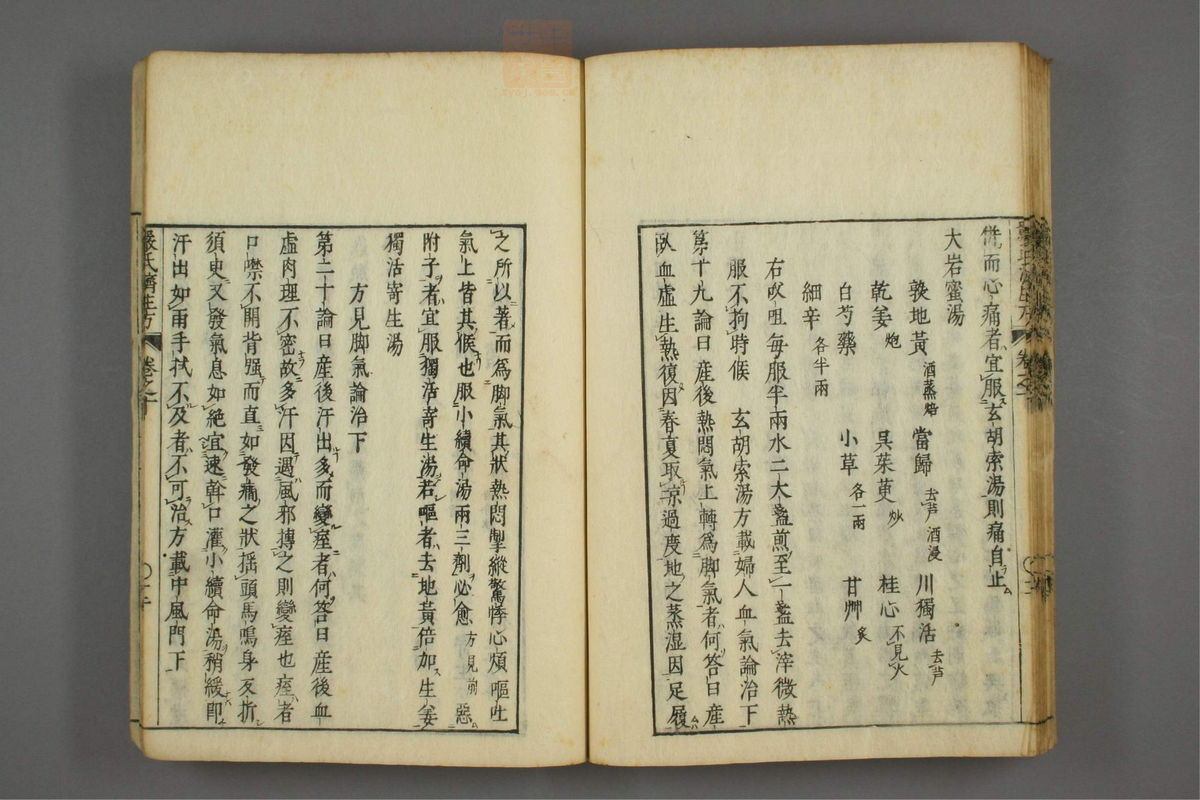 而心痛者宜服玄胡索湯則痛自止
大岩蜜湯
熟地黃酒蒸焙 當歸去芦酒浸 川獨活去芦
乾姜炮 吳茱萸炒 桂心不見火
白芍藥 小草各一兩 甘艸炙
細辛各半兩
右㕮咀每服半兩水二大盞煎至一盞去滓微熱
服不拘時候 玄胡索湯方載婦人血氣論治下
第十九論曰產後熱悶氣上轉爲脚氣者何答曰產
臥血虛生熱復因春夏取凉過度地之蒸湿因足履
之所以著而爲脚氣其狀熱悶掣縱驚悸心煩嘔吐
氣上皆其候也服小續命湯兩三劑必愈方見前 惡
附子者宜服獨活寄生湯若嘔者去地黃倍加生姜
獨活寄生湯
方見脚氣論治下
第二十論曰產後汗出多而變痙者何答曰產後血
虛肉理不密故多汗因遇風邪搏之則變痙也痙者
口噤不開背强而直如發癇之狀揺頭馬鳴身反折
須史又發氣息如絶宜速斡口灌小續命湯稍緩即
汗出如雨手拭不及者不可治方載中風門下
嚴氏濟生方 卷之